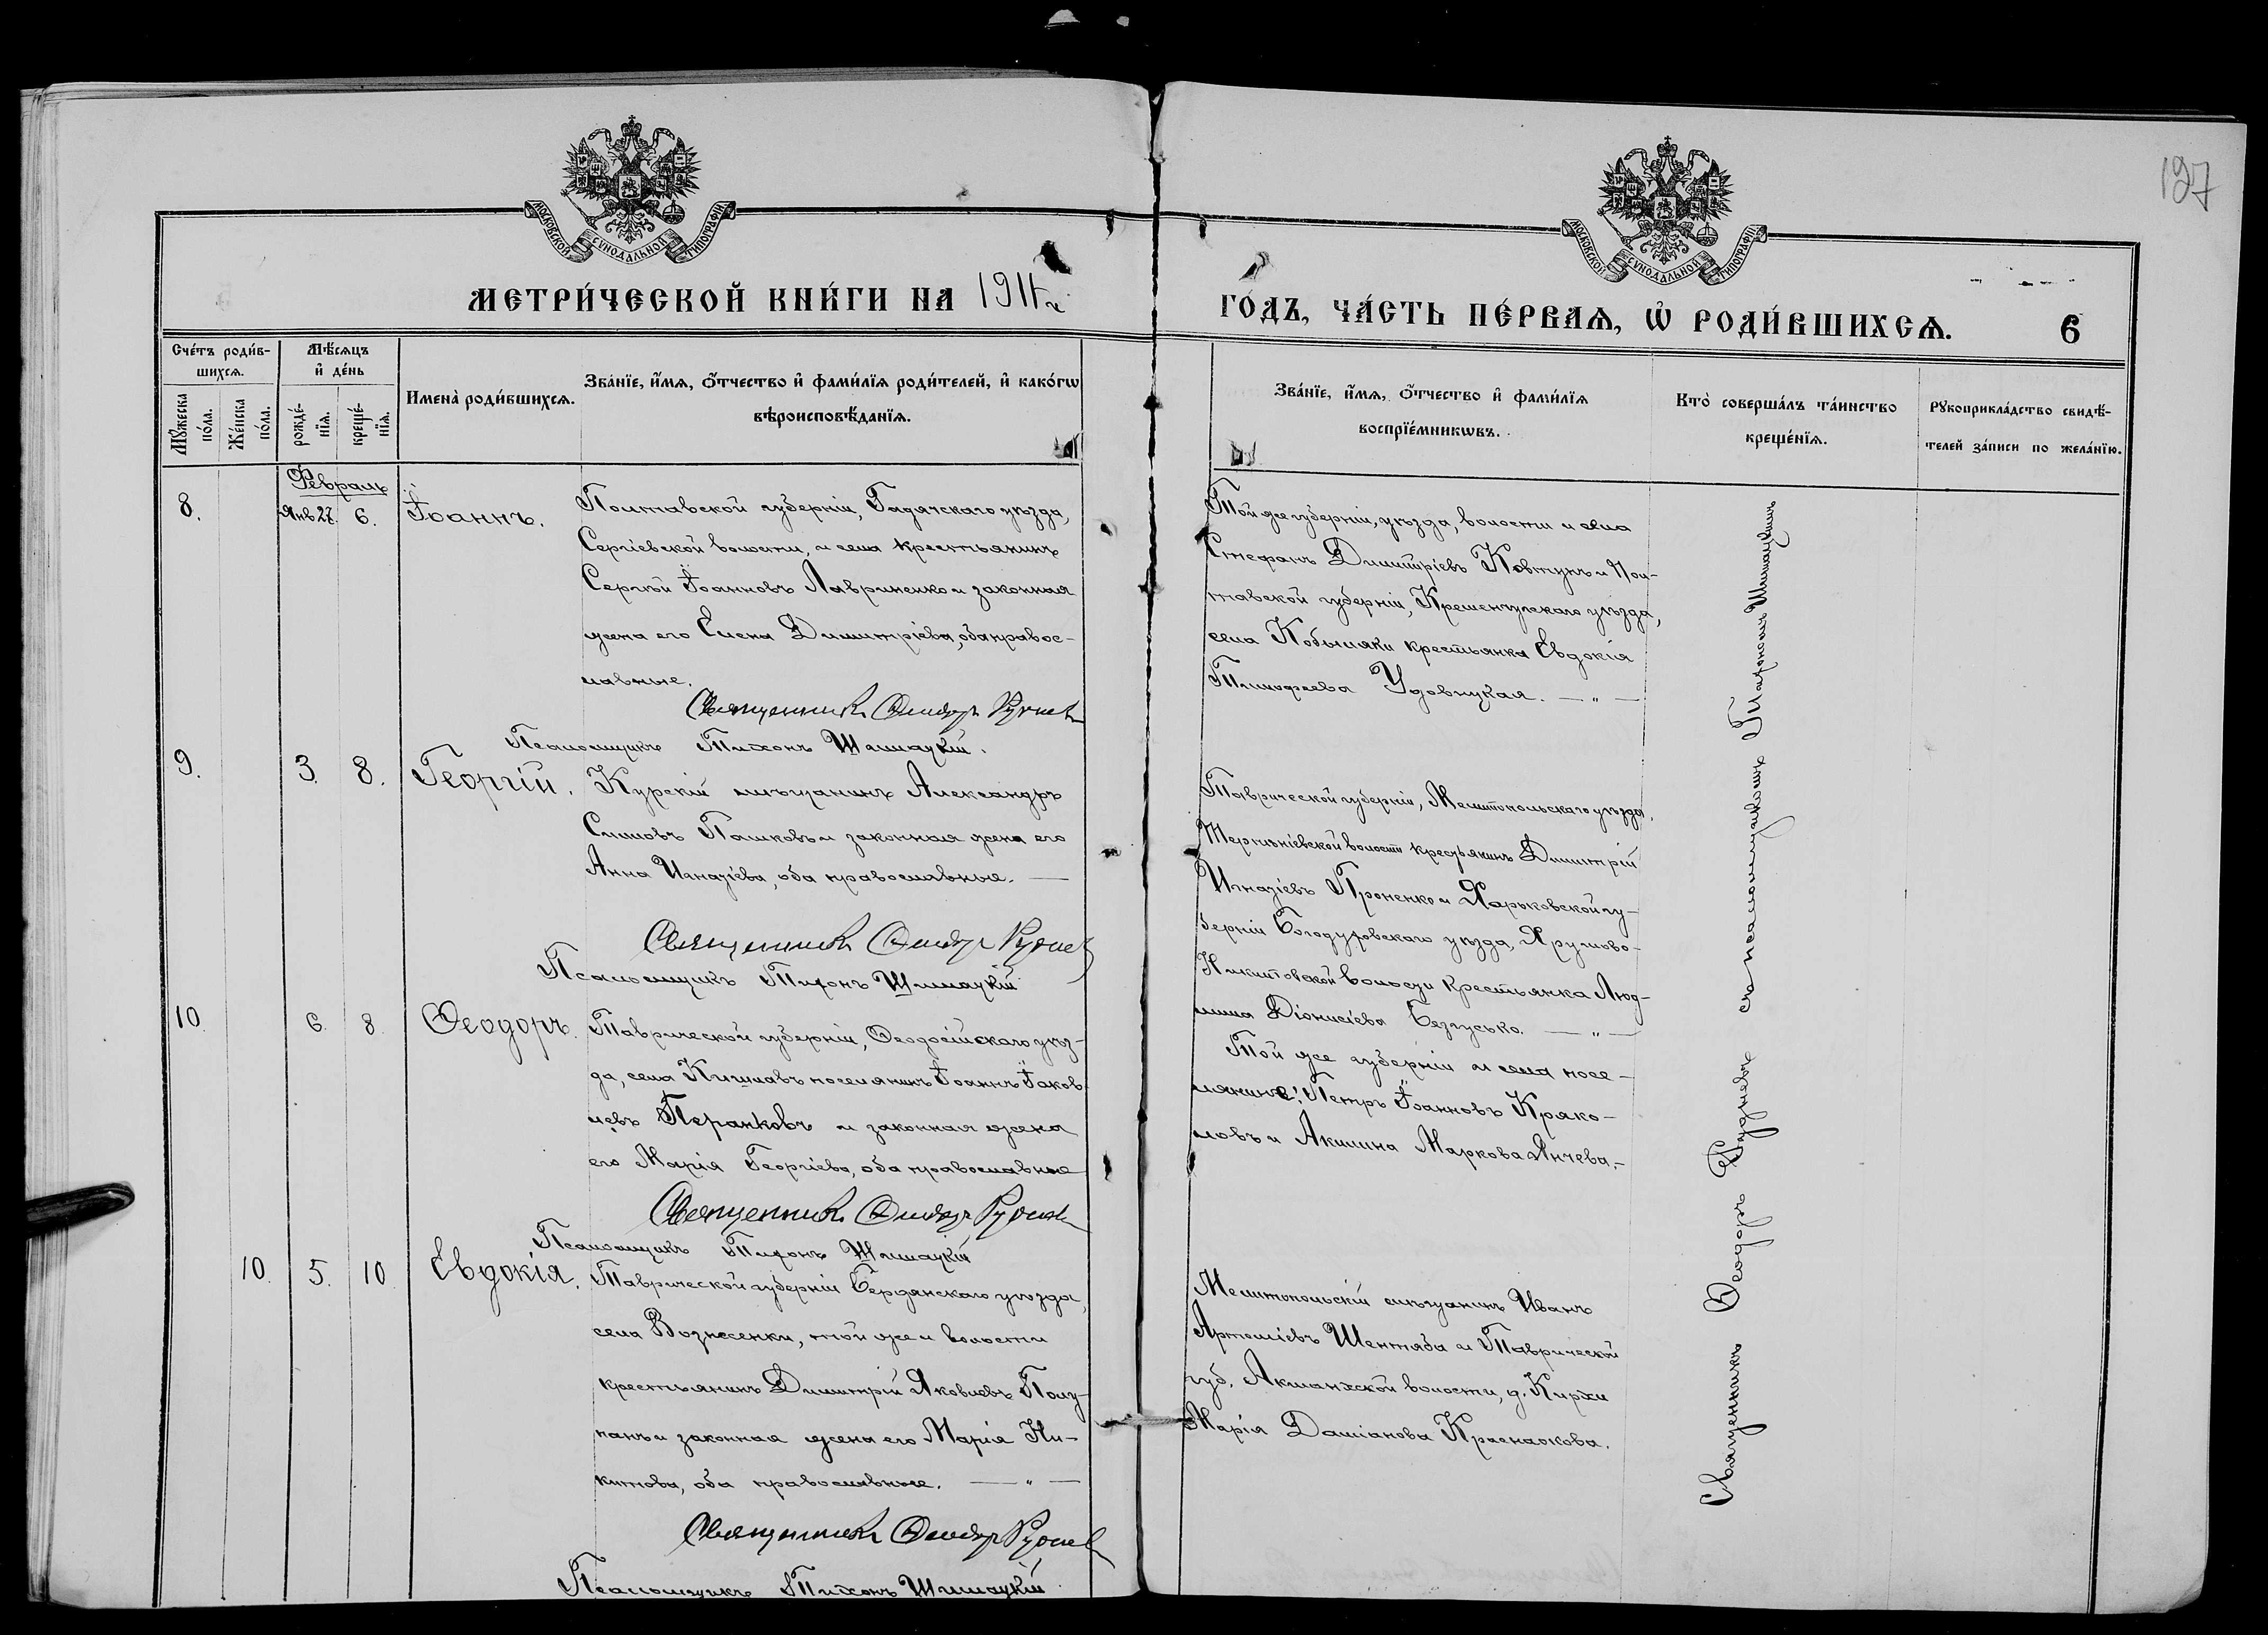 197
МОСКОВСКОЙ СУНОДАЛЬНОЙ ТИПОГРАФІИ
МОСКОВСКОЙ СУНОДАЛЬНОЙ ТИПОГРАФІИ
МЕТРИ́ЧЕСКОЙ КНИ́ГИ НА 1911 г.
ГО́ДЪ, ЧА́СТЬ ПЕ́РВАѦ, Ѡ҆ РОДИ́ВШИХСѦ. 6
Сче́тъ роди́в-
шихсѧ.
Мѣ́сѧцъ
и҆ де́нь
Мꙋ́жеска
по́ла.
Же́нска
по́ла.
рожде́-
нїѧ.
креще́-
нїѧ.
Имена̀ роди́вшихсѧ.
Зва́нїе, и҆́мѧ, ѻ҆́тчество и҆ фами́лїѧ роди́телей, и҆ како́гѡ
вѣроисповѣ́данїѧ.
Зва́нїе, и҆́мѧ, ѻ҆́тчество и҆ фами́лїѧ
воспрїе́мникѡвъ.
Кто̀ соверша́лъ та́инство
креще́нїѧ.
Рꙋкоприкла́дство свидѣ́-
телей за́писи по жела́нїю.
Февраль
8. Янв 27. 6. Іоаннъ.
Полтавской губерніи, Гадячскаго уѣзда,
Сергіевской волости, и села крестьянинъ
Сергій Іоанновъ Лавриненко и законная
жена его Елена Димитріева, оба правос-
лавные.
Священникъ Феодоръ Руднев
Псаломщикъ Тихонъ Шишацкій.
Той же губерніи, уѣзда, волости и села
Стефанъ Димитріевъ Ковтунъ и Пол-
тавской губерніи, Кременчугскаго уѣзда,
села Кобыляки крестьянка Евдокія
Тимофеева Удовицкая. — " —
9. 3. 8. Георгій.
Курскій мѣщанинъ Александръ
Симовъ Пашковъ и законная жена его
Анна Игнатіева, оба православные. —
Священникъ Феодоръ Руднев
Псаломщикъ Тихонъ Шишацкій
Таврической губерніи, Мелитопольскаго уѣзда,
Терпѣніевской волости крестьянинъ Димитрій
Игнатіевъ Проненко и Харьковской гу-
берніи Богодуховскаго уѣзда, Хрущово-
Никитовской волости крестьянка Люд-
мила Діонисіева Безгусько. — " —
10. 6. 8. Феодоръ.
Таврической губерніи, Феодосійскаго уѣз-
да, села Кишлавъ поселянинъ Іоаннъ Іаков-
левъ Перанковъ и законная жена
его Марія Георгіева, оба православные
Священникъ Феодоръ Руднев
Псаломщикъ Тихонъ Шишацкій
Той же губерніи и села посе-
ляните: Петръ Іоанновъ Кряко-
ловъ и Акилина Маркова Янчева. —
10. 5. 10. Евдокія.
Таврической губерніи Бердянскаго уѣзда,
села Вознесенки, той же и волости
крестьянинъ Димитрій Яковлевъ Полу-
панъ и законная жена его Марія Ни-
китова, оба православные. — " —
Священникъ Феодоръ Руднев
Псаломщикъ Тихонъ Шишацкій
Мелитопольскій мѣщанинъ Иванъ
Артеміевъ Шентяба и Таврической
губ. Акманхской волости, д. Кирхи
Марія Даміанова
Священникъ Феодоръ Рудневъ съ псаломщикомъ Тихономъ Шишацкимъ